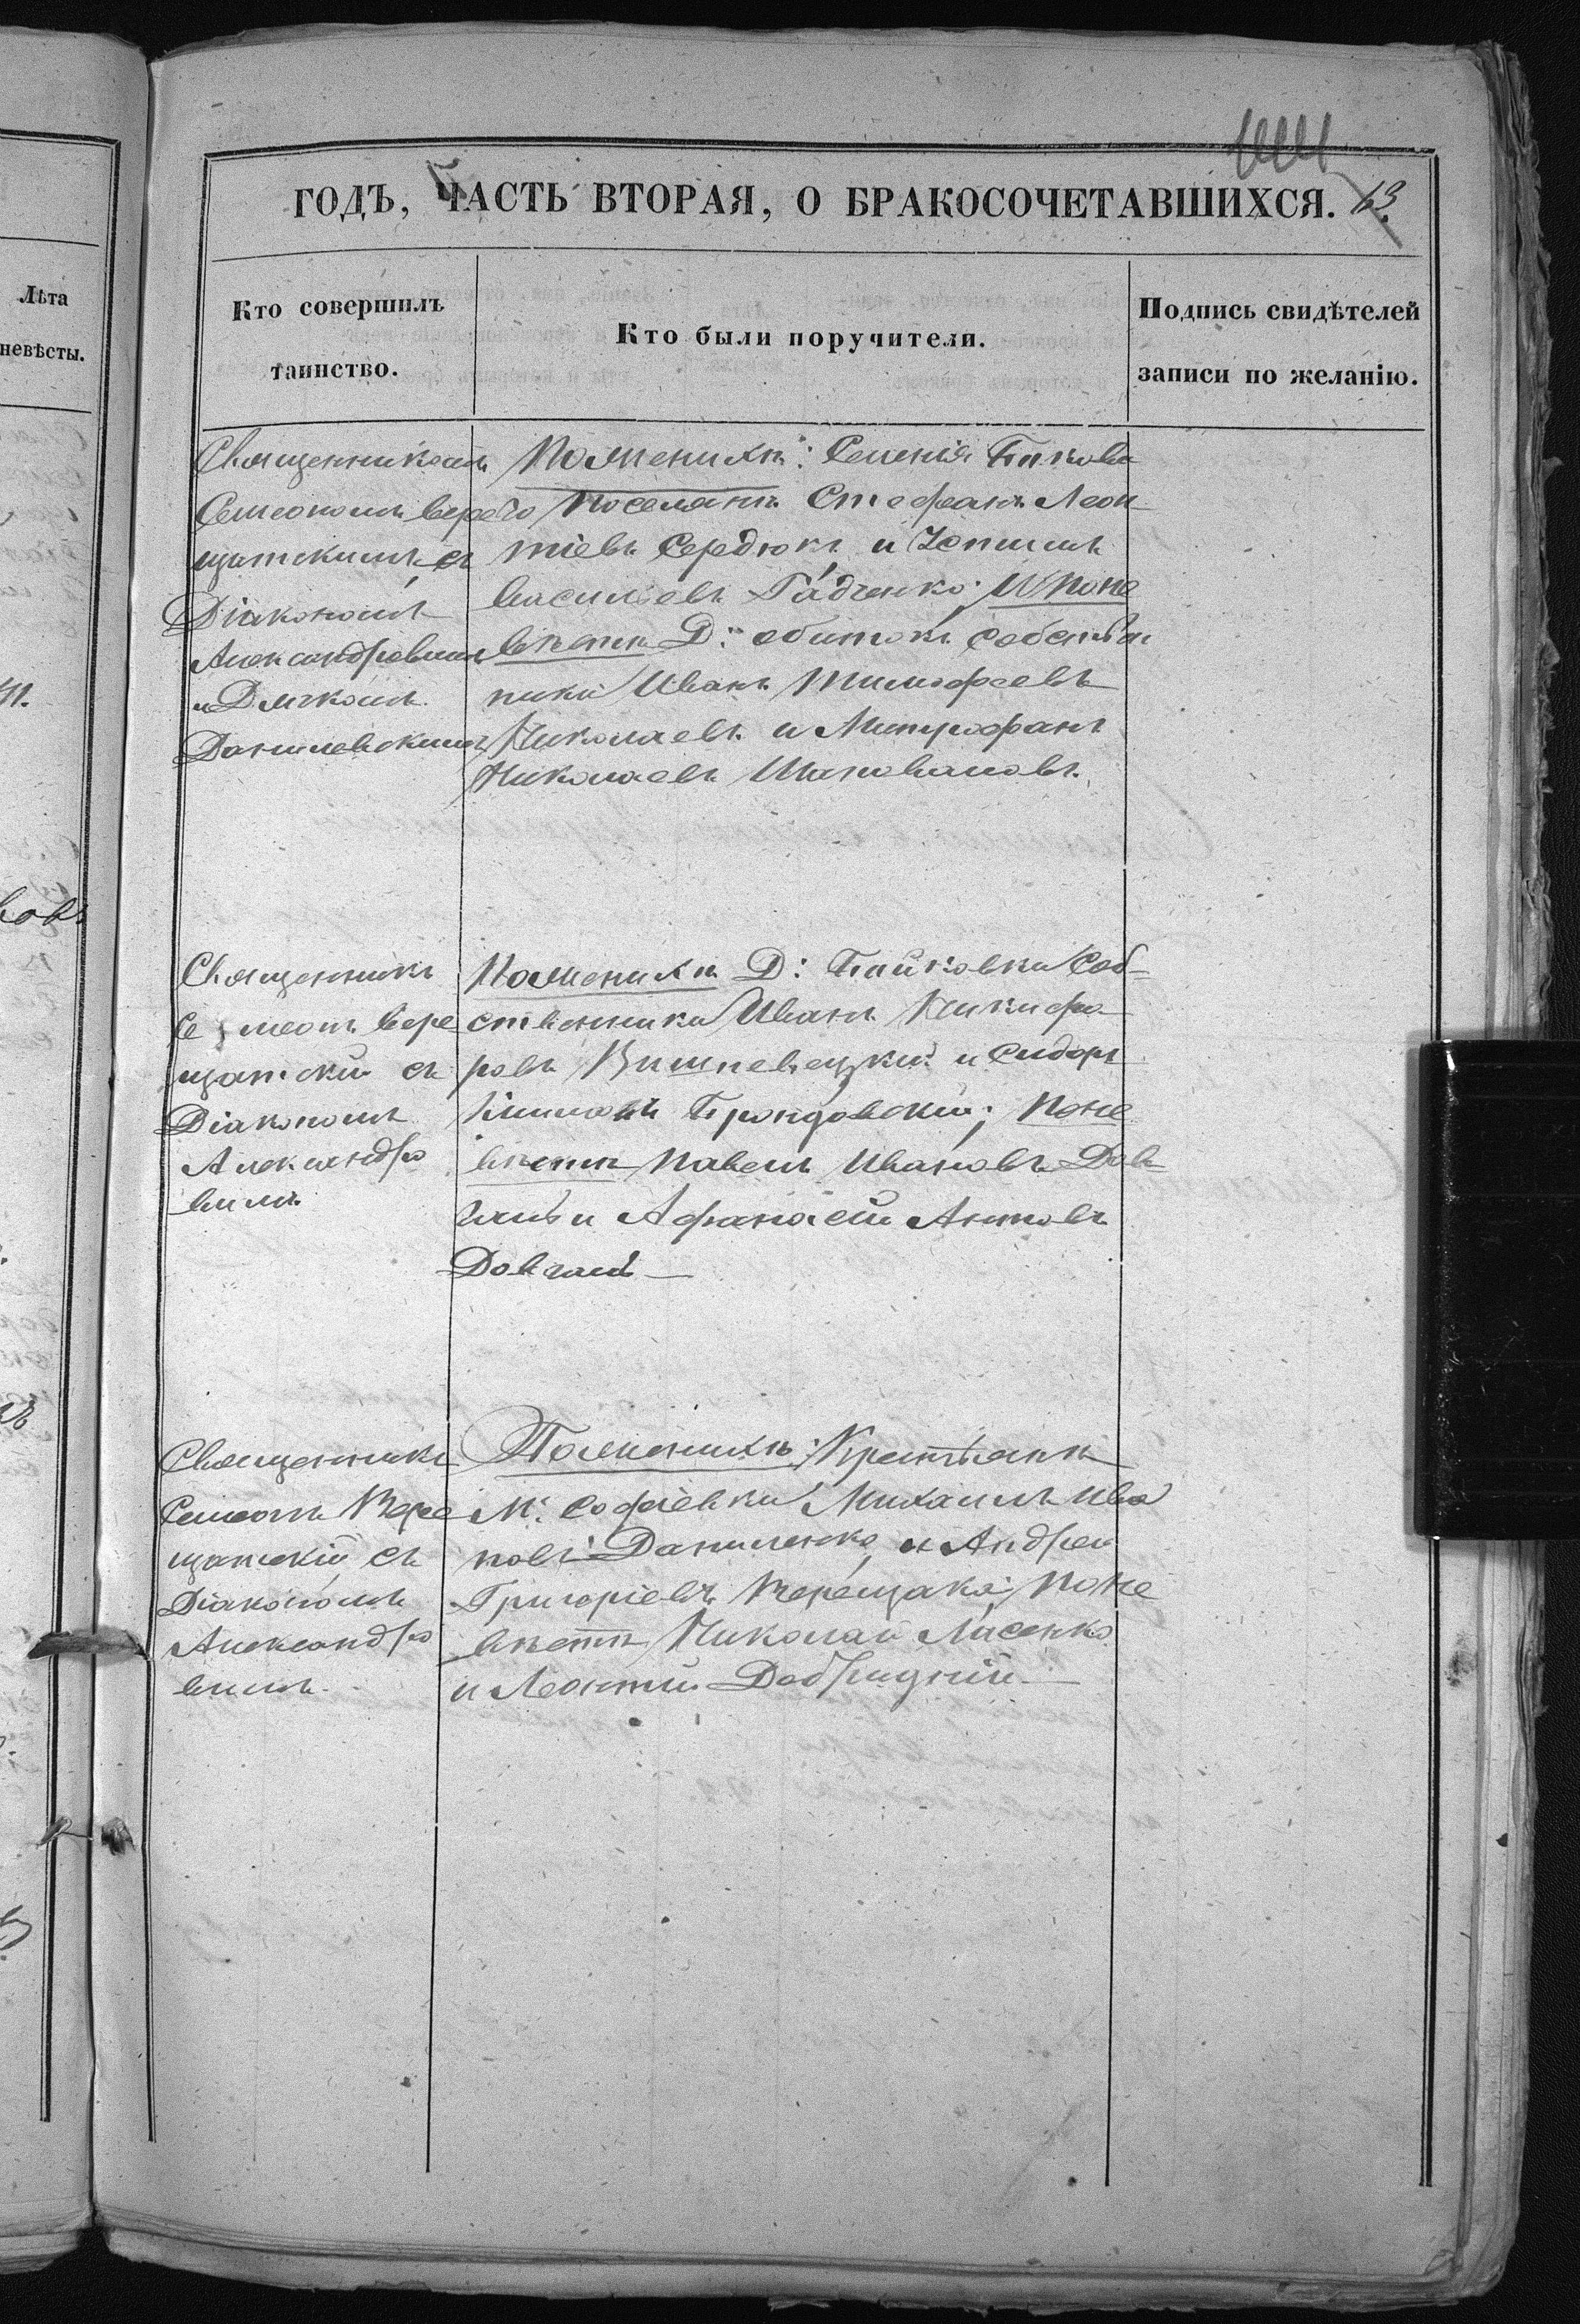 ГОДЪ, ЧАСТЬ ВТОРАЯ, О БРАКОСОЧЕТАВШИХСЯ. 63.
Лѣта
невѣсты.
Кто совершилъ
таинство.
Кто были поручители.
Подпись свидѣтелей
записи по желанію.
Священникомъ
Симеономъ Вере
щатскимъ съ
Діакономъ
Александровимъ
и Дьячкомъ
Данилевскимъ
По женихѣ: Селенія
го поселянинъ Стефанъ Леон
тіевъ Середюкъ и
Васильевъ Гадченко; И по не
вѣстѣ Д: собствен
ники Иванъ Тимофеевъ
Николаевъ и Митрофанъ
Николаевъ Шаповаловъ.
Священникъ
Семеонъ Вере
щатскій съ
Діакономъ
Александро
вимъ
По женихѣ Д: Байковки Соб-
ственники Иванъ Никифо
ровъ Вишневецкій и Сидоръ
Климовъ; По не
вѣстѣ Павелъ Ивановъ Дов
гань и Афанасій Антовъ
Довгань
Священникъ
Симеонъ Вере
щатскій съ
Діакономъ
Александро
вимъ.
По женихѣ: Крестьяне
М. Софіевки Михаилъ Ива
новъ Даниленко и Андрей
Григоріевъ Верещака; По не
вѣстѣ Николай Лисенко
и Леонтій Добрицкій